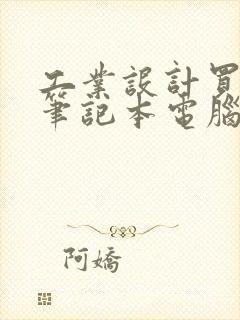 工業設計買
筆記本電腦
阿嬌